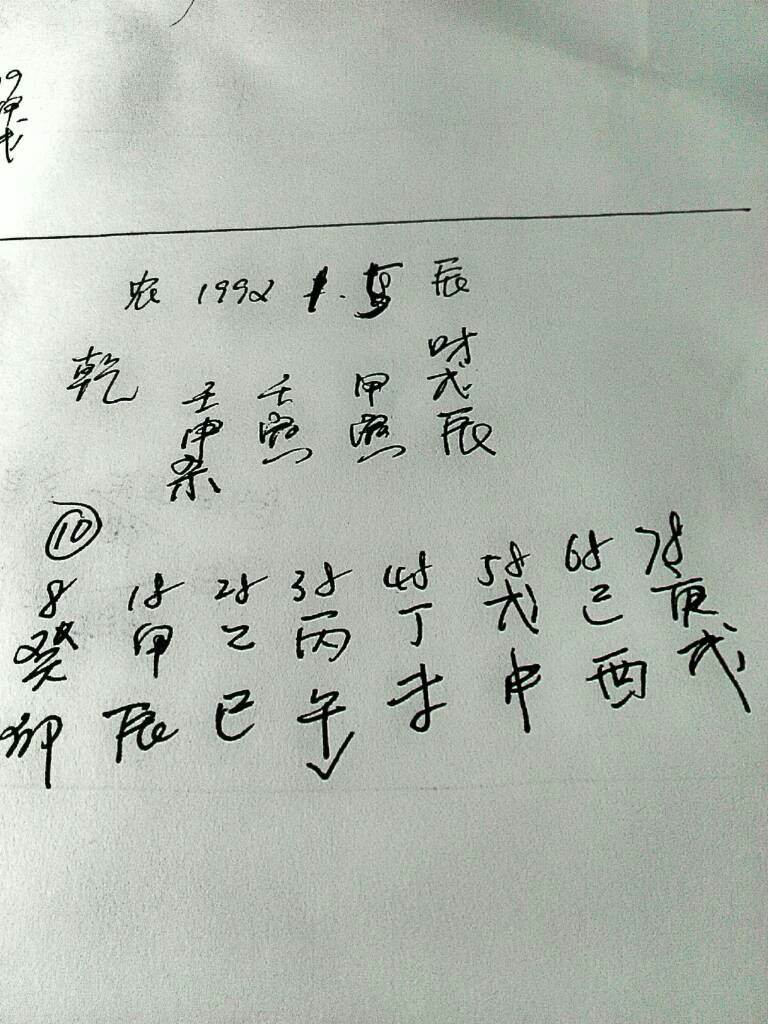 农 1992 辰
乾 壬 壬 甲 戊
申 寅 寅 辰
杀
⑩
8 18 28 38 48 58 68 78
癸 甲 乙 丙 丁 戊 己 庚
卯 辰 巳 午 未 申 酉 戌